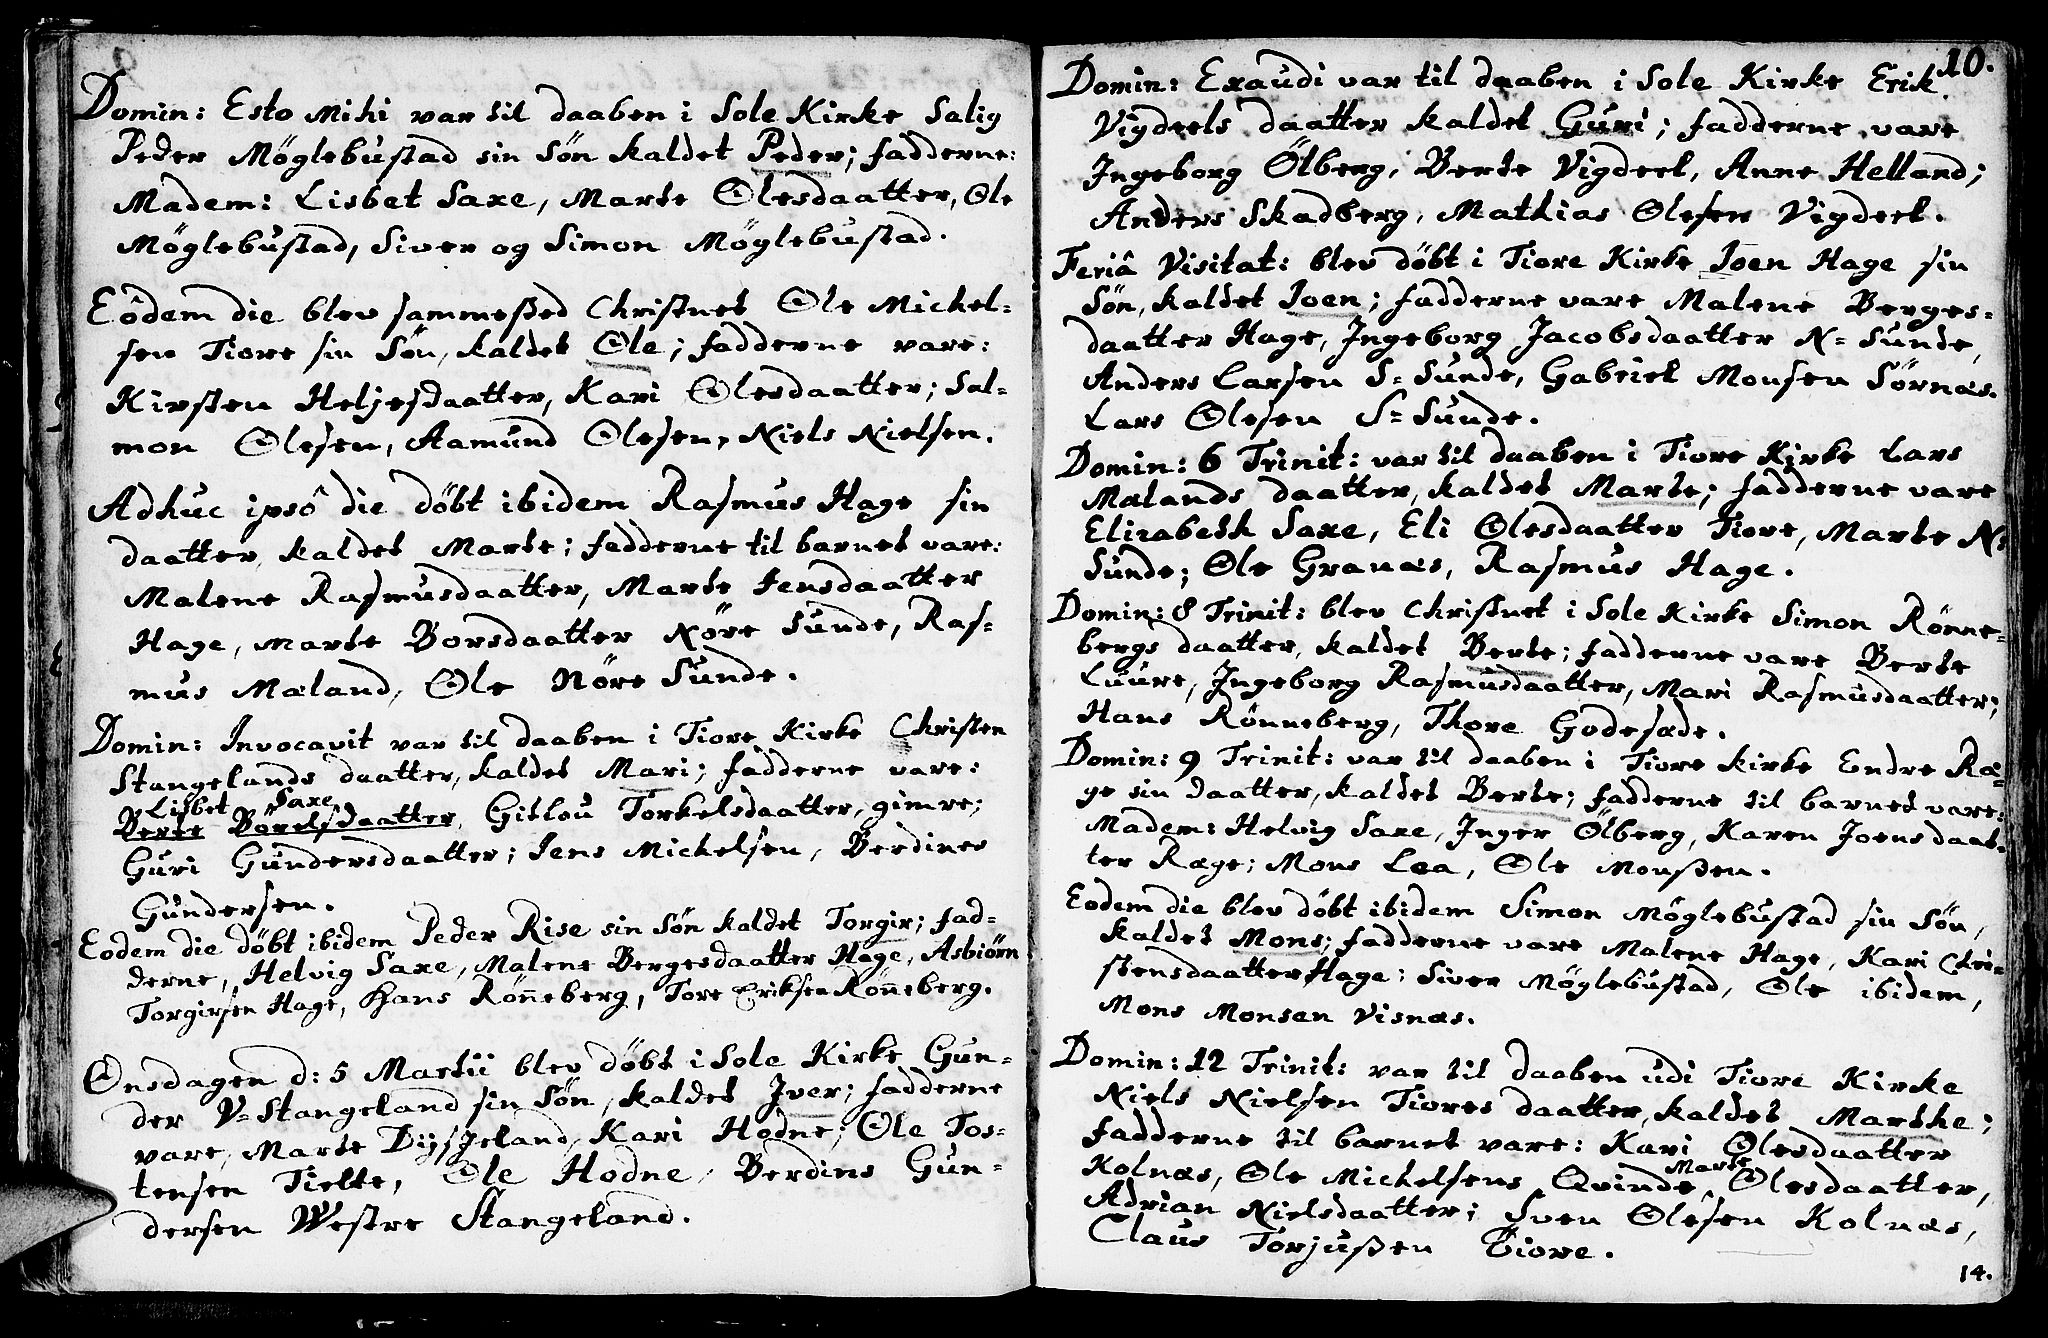 Domin: Esto Mihi var til daaben i Sole Kirke Salig
Peder Möglebustad sin Sön kaldet Peder; fadderne:
Madem: Lisbet Saxe, Marte Olesdaatter, Ole
Möglebustad, Siver og Simon Möglebustad.
Eôdem die blev sammested Christnet Ole Michel=
sen Tiore sin Sön, kaldet Ole; fadderne vare:
Kirsten Heljesdaatter, Kari Olesdaatter; Sal=
mon Olesen, Aamund Olesen, Niels Nielsen.
Adhuc ipsô die döbt ibidem Rasmus Hage sin
daatter, kaldet Marte; fadderne til barnet vare:
Malene Rasmusdaatter, Marte Jensdaatter
Hage, Marte Borsdaatter Nöre Sunde, Ras=
mus Mæland, Ole Nöre Sunde.
Domin: Invocavit var til daaben i Tiore Kirke Christen
Stangelands daatter, kaldet Mari; fadderne vare:
Lisbet Saxe
Berte Börelsdaatter, Gislou Torkelsdaatter, gimre;
Guri Gundersdaatter; Jens Michelsen, Berdines
Gundersen.
Eodem die döbt ibidem Peder Rise sin Sön kaldet Torgir; fad=
derne, Helvig Saxe, Malene Bergesdaatter Hage, Asbiörn
Torgirsen Hage, Hans Röñeberg, Tore Eriksen Röñeberg.
Onsdagen d: 5 Martii blev döbt i Sole Kirke Gun=
der V= Stangeland sin Sön, kaldet Iver; fadderne
vare, Marte Dysjeland, Kari Hodne; Ole Tos=
tensen Tielte, Ole Hodne, Berdines Gun=
dersen Westre Stangeland.
10.
Domin: Exaudi var til daaben i Sole Kirke Erik
Vigdeels daatter kaldet Guri; fadderne vare
Ingeborg Ölberg, Berte Vigdeel, Anne Helland;
Anders Skadberg, Mathias Olesen Vigdeel.
Feriâ Visitat: blev döbt i Tiore Kirke Joen Hage sin
Sön, kaldet Joen; fadderne vare Malene Berges=
daatter Hage, Ingeborg Jacobsdaatter N= Sunde,
Anders Larsen S= Sunde, Gabriel Monsen Sörnæs.
Lars Olesen S= Sunde.
Domin: 6 Trinit: var til daaben i Tiore Kirke Lars
Mælands daatter, kaldet Marte; fadderne vare
Elizabeth Saxe, Eli Olesdaatter Tiore, Marte N:
Sunde; Ole Granæs, Rasmus Hage.
Domin: 8 Trinit: blev Christnet i Sole Kirke Simon Rönne=
bergs daatter, kaldet Berte; fadderne vare Berte
Luure, Ingeborg Rasmusdaatter, Mari Rasmusdaatter;
Hans Rönneberg, Thore Godesæde.
Domin: 9 Trinit: var til daaben i Tiore kirke Endre Ræ=
ge sin daatter, kaldet Berte; fadderne til barnet vare:
Madem: Helvig Saxe, Inger Ölberg, Karen Joensdaat=
ter Ræge; Mons Lea, Ole Monßen.
Eodem die blev döbt ibidem Simon Möglebustad sin Sön,
kaldet Mons; fadderne vare Malene Hage, Kari Chri=
stensdaatter Hage; Siver Möglebustad, Ole ibidem,
Mons Monsen Visnæs.
Domin: 12 Trinit: var til daaben udi Tiore Kirke
Niels Nielsen Tiores daatter, kaldet Marthe;
fadderne til barnet vare: Kari Olesdaatter
Kolnæs, Ole Michelsens Qvinde Marte Olesdaatter,
Adrian Nielsdaatter; Sven Olesen Kolnæs,
Claus Torjußen Tiore.
14.